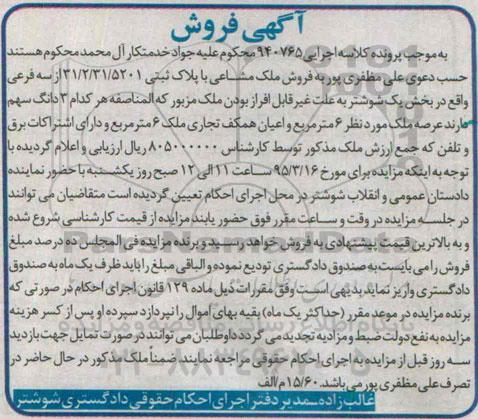 آگهی فروش
به موجب پرونده کلاسه اجرایی ۹۴۰۷۶۵ محکوم علیه جواد خدمتکار آل محمد محکوم هستند
حسب دعوی علی مظفری پور به فروش ملک مشاعی با پلاک ثبتی ۳۱/۲/۳۱/۵۲۰۱ از سه فرعی
واقع در بخش یک شوشتر به علت غیر قابل افراز بودن ملک مزبور که المناصفه هر کدام ۳ دانگ سهم
دارند عرصه ملک مورد نظر ۶ مترمربع و اعیان همکف تجاری ملک ۶ مترمربع و دارای اشتراکات برق
و تلفن که جمع ارزش ملک مذکور توسط کارشناس ۸۰۵۰۰۰۰۰۰ ریال ارزیابی و اعلام گردیده با
توجه به اینکه مزایده برای مورخ ۹۵/۳/۱۶ ساعت ۱۱ الی ۱۲ صبح روز یکشنبه با حضور نماینده
دادستان عمومی و انقلاب شوشتر در محل اجرای احکام تعیین گردیده است متقاضیان می توانند
در جلسه مزایده در وقت و ساعت مقرر فوق حضور یابند مزایده از قیمت کارشناسی شروع شده
و به بالاترین قیمت پیشنهادی به فروش خواهد رسید و برنده مزایده فی المجلس ده درصد مبلغ
فروش را می بایست به صندوق دادگستری تودیع نموده و الباقی مبلغ را باید ظرف یک ماه به صندوق
دادگستری واریز نماید بدیهی است وفق مقررات ذیل ماده ۱۲۹ قانون اجرای احکام در صورتی که
برنده مزایده در موعد مقرر (حداکثر یک ماه) بقیه بهای اموال را نپردازد سپرده او پس از کسر هزینه
مزایده به نفع دولت ضبط و مزایده تجدید می گردد داوطلبان می توانند در صورت تمایل جهت بازدید
سه روز قبل از مزایده به اجرای احکام حقوقی مراجعه نمایند ضمناً ملک مذکور در حال حاضر در
تصرف علی مظفری پور می باشد. ۱۵/۶۰ م/الف
غالب زاده ـ مدیر دفتر اجرای احکام حقوقی دادگستری شوشتر